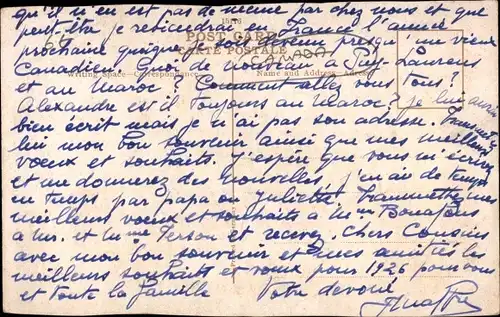 qu'il n'en est pas de même par chez nous et que
peut-être je reviendrai en France l'année
prochaine quoique je sois devenu presqu'un vieux
Canadien. Quoi de nouveau à St Laurens
et au Maroc? Comment allez vous tous?
Alexandre est il toujours au Maroc? Je lui aurais
bien écrit mais je n'ai pas son adresse. Transmettez
lui mon bon souvenir ainsi que mes meilleurs
voeux et souhaits. J'espère que vous m'écrirez
et me donnerez des nouvelles, j'en ai de temps
en temps par papa ou Juliette. Transmettez mes
meilleurs voeux et souhaits à Mme
à Mr. et Mme et recevez. Chers Cousins
avec mon bon souvenir et mes amitiés les
meilleurs souhaits et voeux pour 1926 pour vous
et toute la famille Votre dévoué
POST CARD
CARTE POSTALE
Writing Space - Correspondance
Name and Address - Adresse